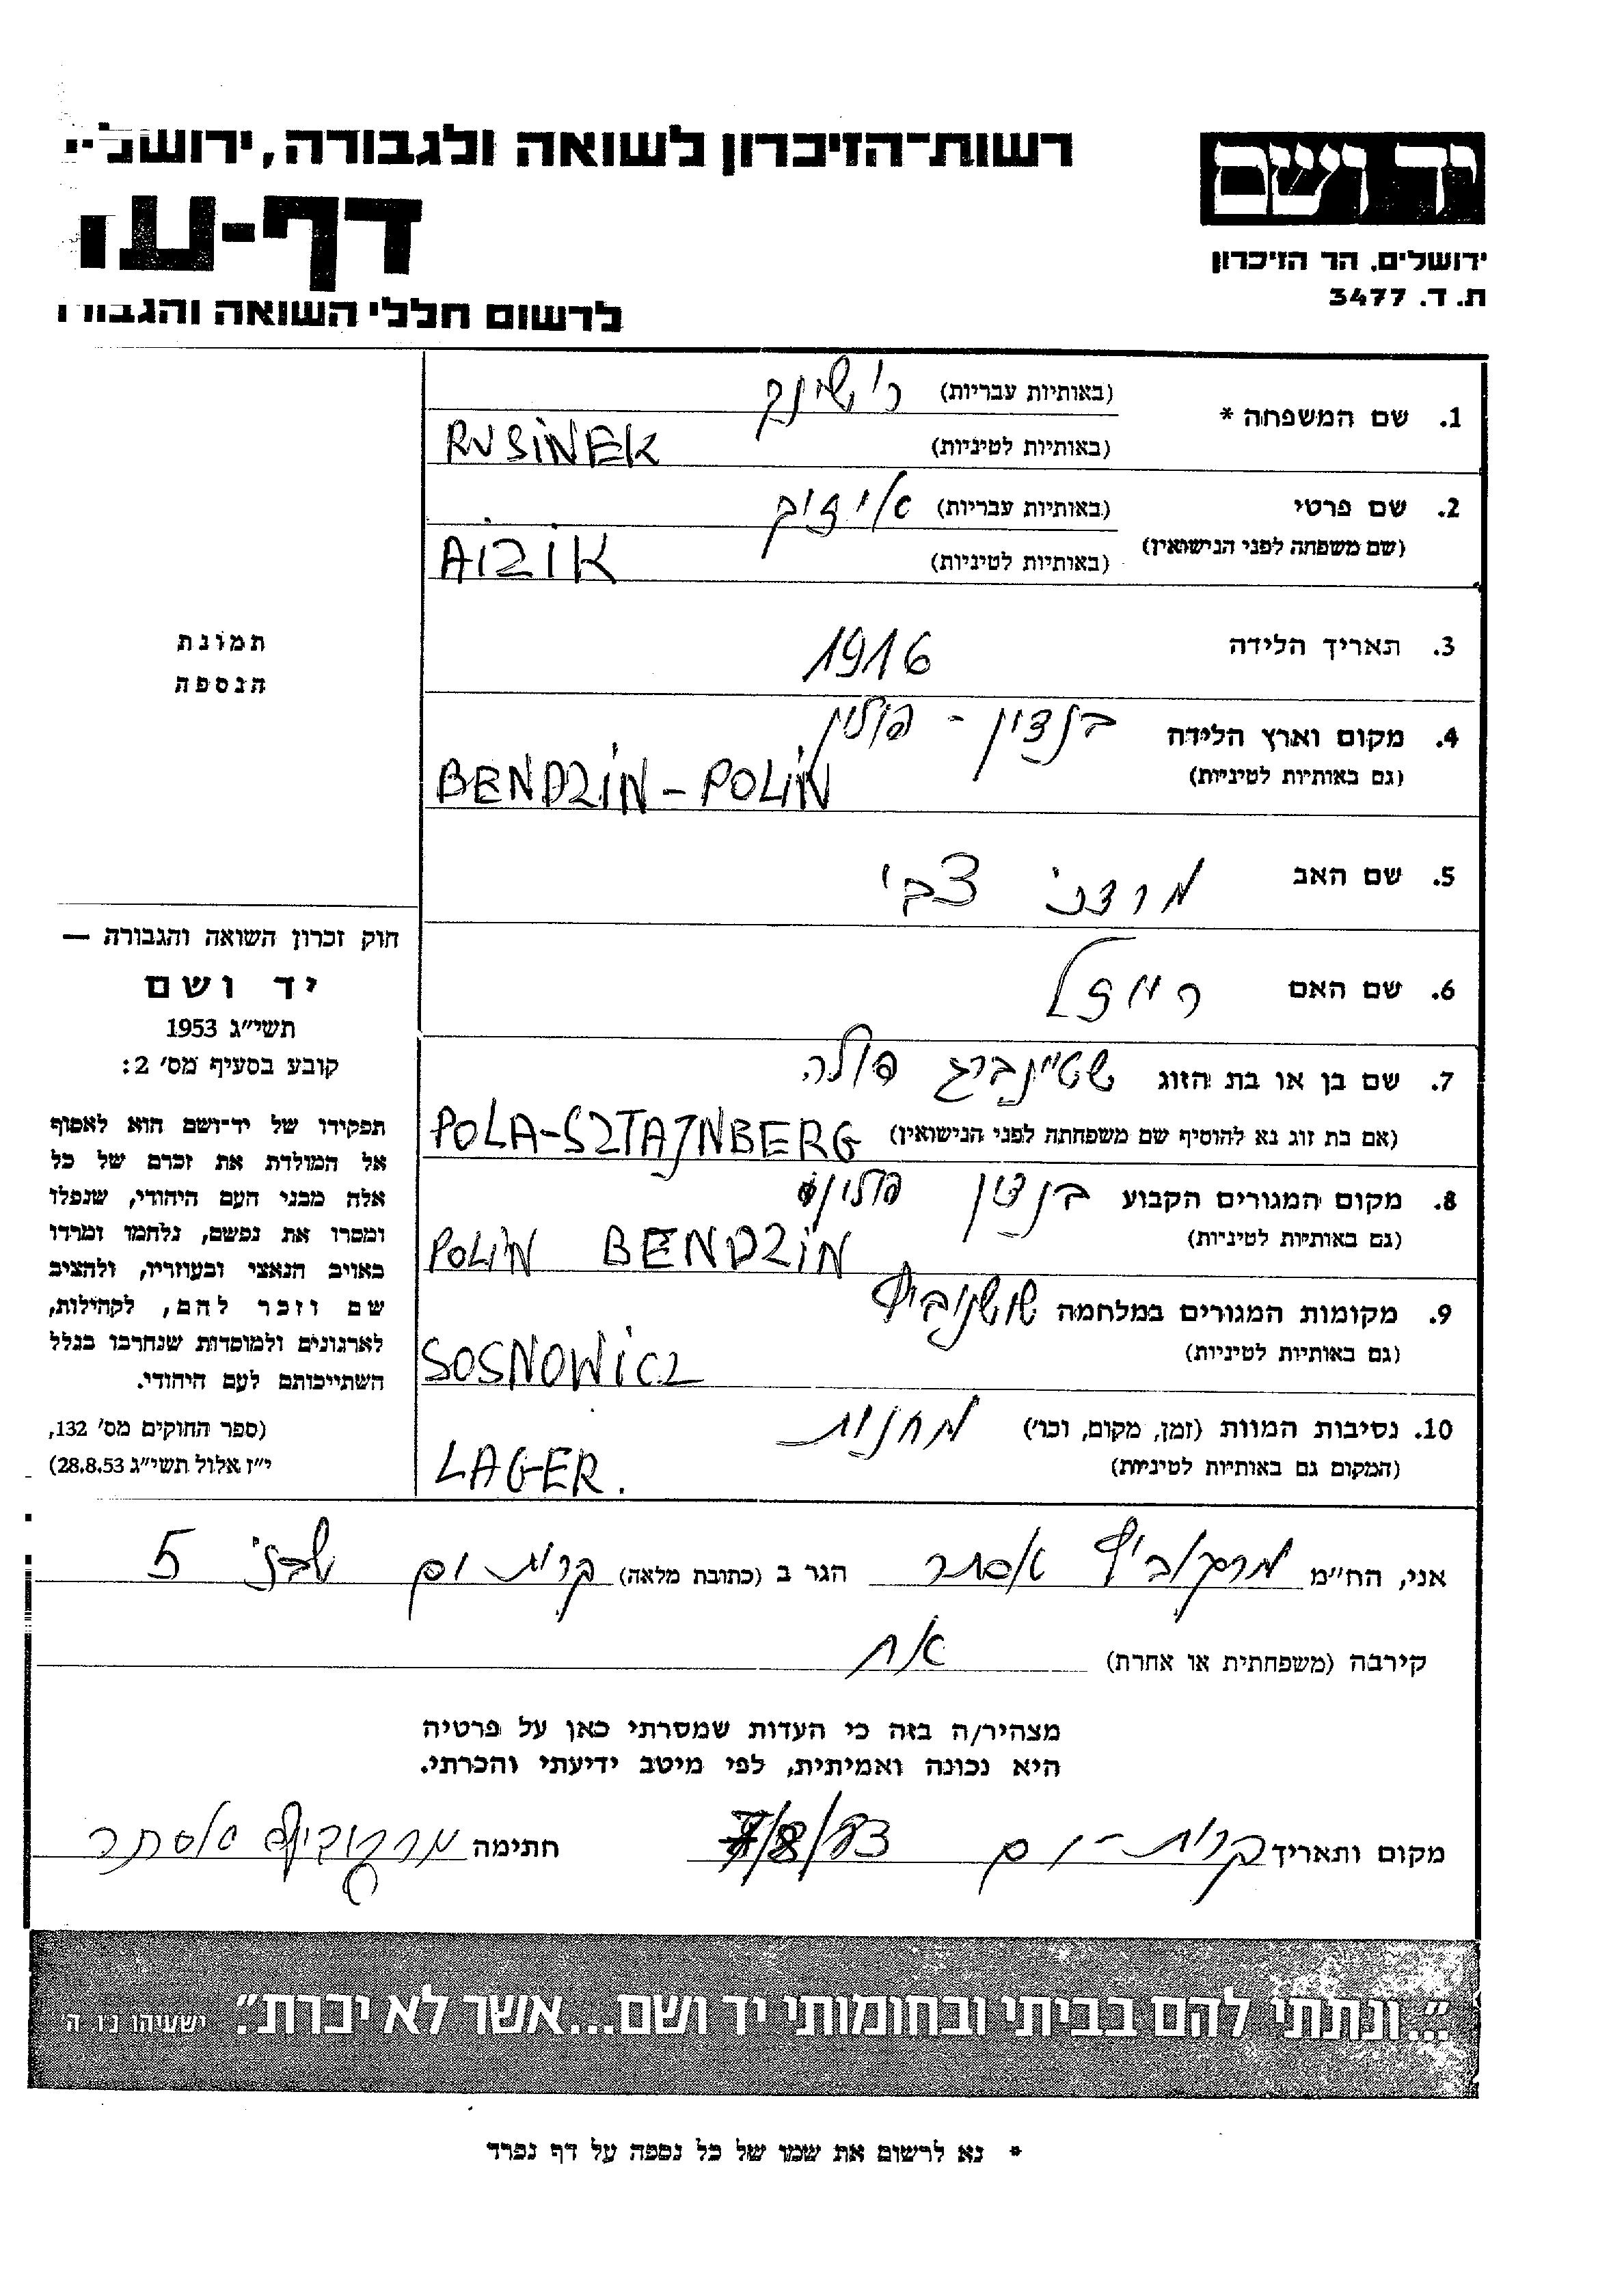 רשות-הזיכרון לשואה ולגבורה, ירושלי
יד ושם
דף-ע
ירושלים, הר הזיכרון
ת. ד. 3477
לרשום חללי השואה והגבור
1. שם המשפחה * (באותיות עבריות) רושינק
(באותיות לטיניות) RUSINEK
2. שם פרטי (באותיות עבריות) איזיק
(שם משפחה לפני הנישואין) (באותיות לטיניות) AIZIK
תמונת
הנספה
3. תאריך הלידה 1916
4. מקום וארץ הלידה בנדזין - פולין
(גם באותיות לטיניות) BENDZIN - POLIN
5. שם האב מרדכי צבי
6. שם האם רייזל
7. שם בן או בת הזוג שטיינברג פולה
(אם בת זוג נא להוסיף שם משפחתה לפני הנישואין) POLA-SZTAJNBERG
8. מקום המגורים הקבוע פולין
(גם באותיות לטיניות) POLIN BENDZIN
9. מקומות המגורים במלחמה
(גם באותיות לטיניות) SOSNOWICZ
10. נסיבות המוות (זמן, מקום, וכו') מחנות
(המקום גם באותיות לטיניות) LAGER.
חוק זכרון השואה והגבורה —
יד ושם
תשי"ג 1953
קובע בסעיף מס' 2:
תפקידו של יד-ושם הוא לאסוף
אל המולדת את זכרם של כל
אלה מבני העם היהודי, שנפלו
ומסרו את נפשם, נלחמו ומרדו
באויב הנאצי ובעוזריו, ולהציב
שם וזכר להם, לקהילות,
לארגונים ולמוסדות שנחרבו בגלל
השתייכותם לעם היהודי.
(ספר החוקים מס' 132,
י"ז אלול תשי"ג 28.8.53)
אני, הח"מ מרקוביץ אסתר הגר ב (כתובת מלאה) קרית ים 5
קירבה (משפחתית או אחרת) אח
מצהיר/ה בזה כי העדות שמסרתי כאן על פרטיה
היא נכונה ואמיתית, לפי מיטב ידיעתי והכרתי.
מקום ותאריך קרית-ים /8/83 חתימה מרקוביץ אסתר
"...ונתתי להם בביתי ובחומותי יד ושם...אשר לא יכרת". ישעיהו נ"ו, ה'
* נא לרשום את שמו של כל נספה על דף נפרד